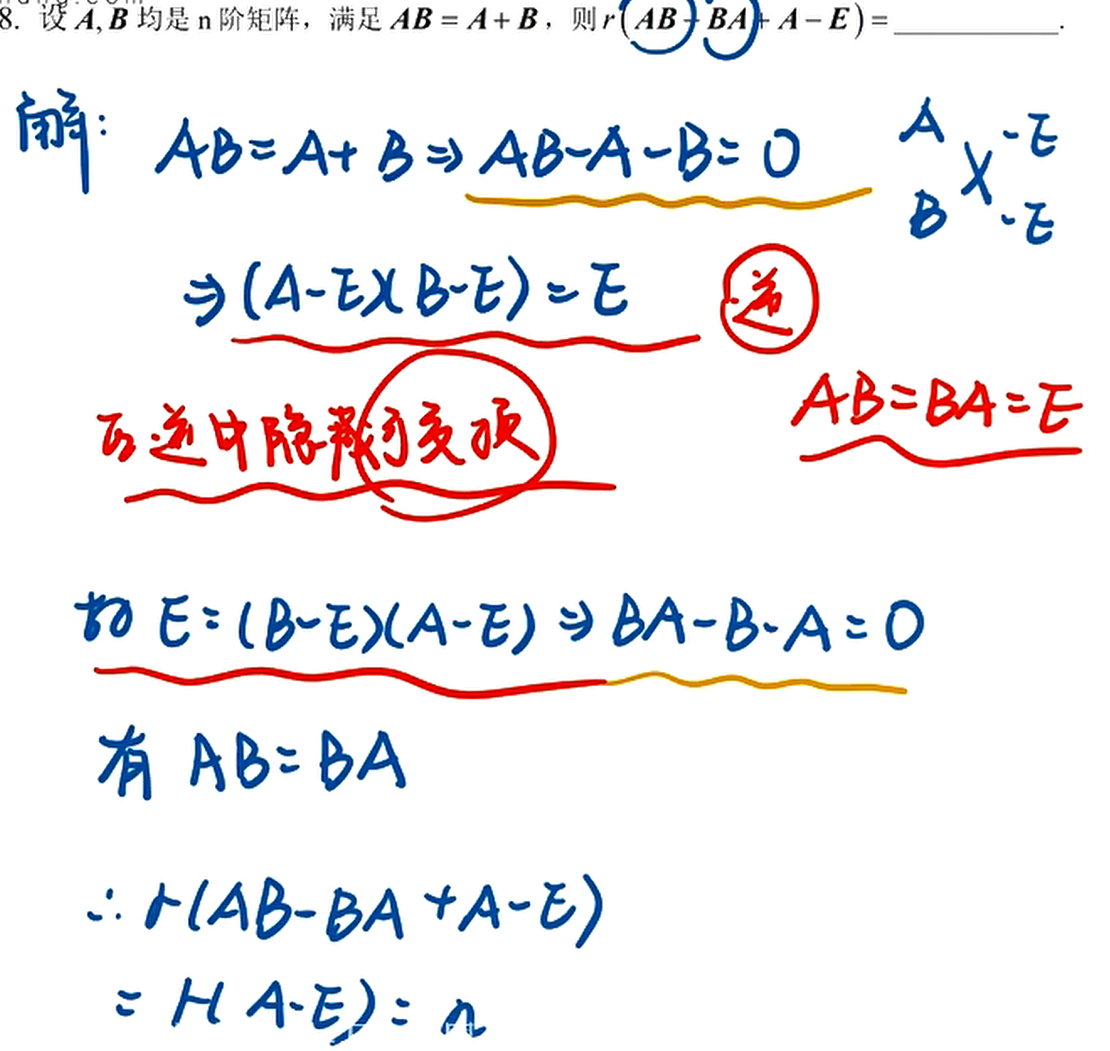 8. 设 A, B 均是 n 阶矩阵，满足 AB = A + B，则 r(AB - BA + A - E) = ____________.
解:
AB = A + B ⇒ AB - A - B = 0
A -E
B -E
⇒ (A-E)(B-E) = E 逆
AB = BA = E
可逆中隐藏可交换
故 E = (B-E)(A-E) ⇒ BA - B - A = 0
有 AB = BA
∴ r(AB - BA + A - E)
= r(A-E) = n